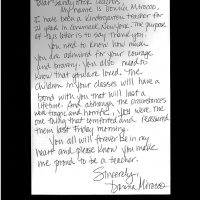 Dear Sandy Hook Teachers,
My name is Donna Mirasso.
I have been a Kindergarten teacher for
21 years in Commack, New York. The purpose
of this letter is to say Thank you.
You need to know how much
you are admired for your courage
and bravery. You also need to
know that you are loved. The
children in your classes will have a
bond with you that will last a
lifetime. And although the circumstances
were tragic and horrific, you were the
one thing that comforted and reassured
them last Friday morning.
You all will forever be in my
heart and please know you make
me proud to be a teacher.
Sincerely,
Donna Mirasso